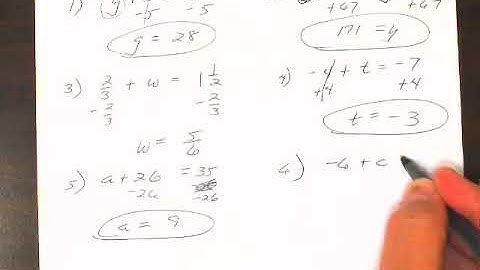 1) y + 5
-5 -5
y = 28
+67 +67
171 = y
3) 2/3 + w = 1 1/2
-2/3 -2/3
w = 5/6
4) -4 + t = -7
+4 +4
t = -3
5) a + 26 = 35
-26 -26
a = 9
6) -6 + c